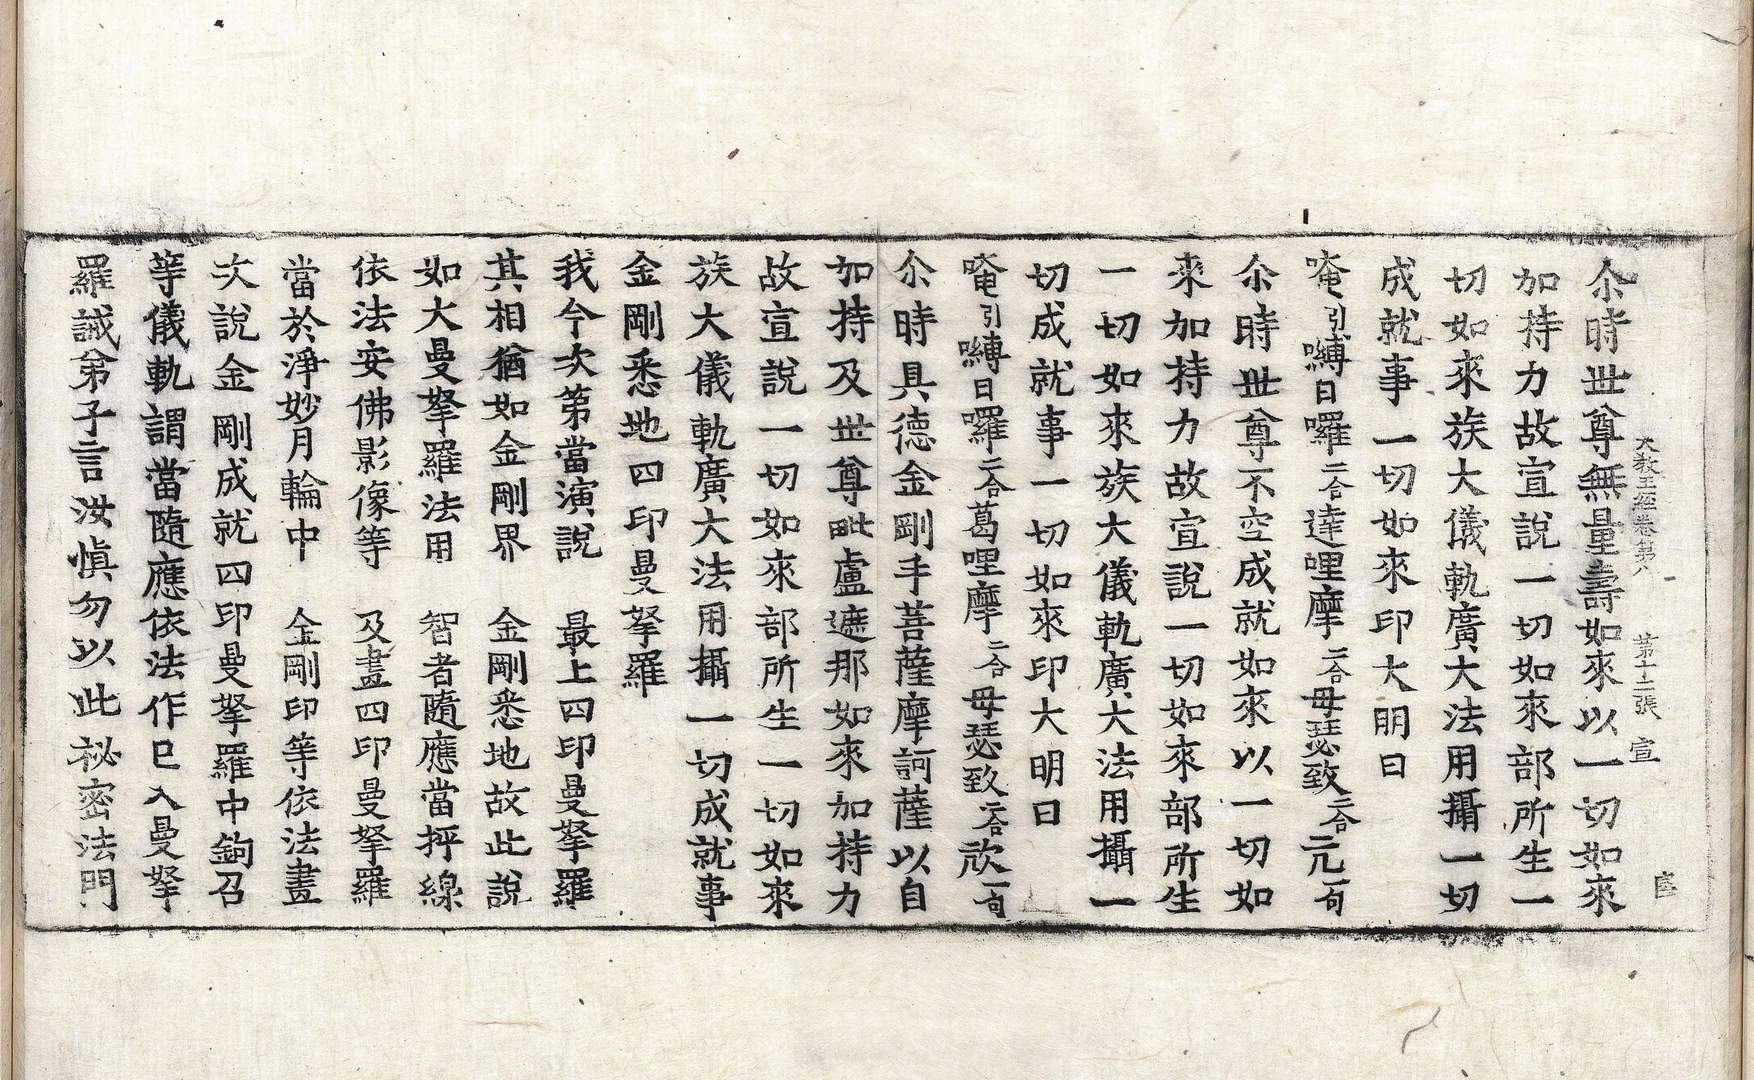 大教王經卷第八　第十二張　宣
尒時世尊無量壽如來以一切如來
加持力故宣說一切如來部所生一
切如來族大儀軌廣大法用攝一切
成就事一切如來印大明曰
唵引嚩日囉二合達哩摩二合毋瑟致二合元一句
尒時世尊不空成就如來以一切如
來加持力故宣說一切如來部所生
一切如來族大儀軌廣大法用攝一
切成就事一切如來印大明曰
唵引嚩日囉二合葛哩摩二合毋瑟致二合欻一句
尒時具德金剛手菩薩摩訶薩以自
加持及世尊毗盧遮那如來加持力
故宣說一切如來部所生一切如來
族大儀軌廣大法用攝一切成就事
金剛悉地四印曼拏羅
我今次第當演說　最上四印曼拏羅
其相猶如金剛界　金剛悉地故此說
如大曼拏羅法用　智者隨應當抨線
依法安佛影像等　及畫四印曼拏羅
當於淨妙月輪中　金剛印等依法畫
次說金剛成就四印曼拏羅中鉤召
等儀軌謂當隨應依法作已入曼拏
羅誡弟子言汝慎勿以此祕密法門